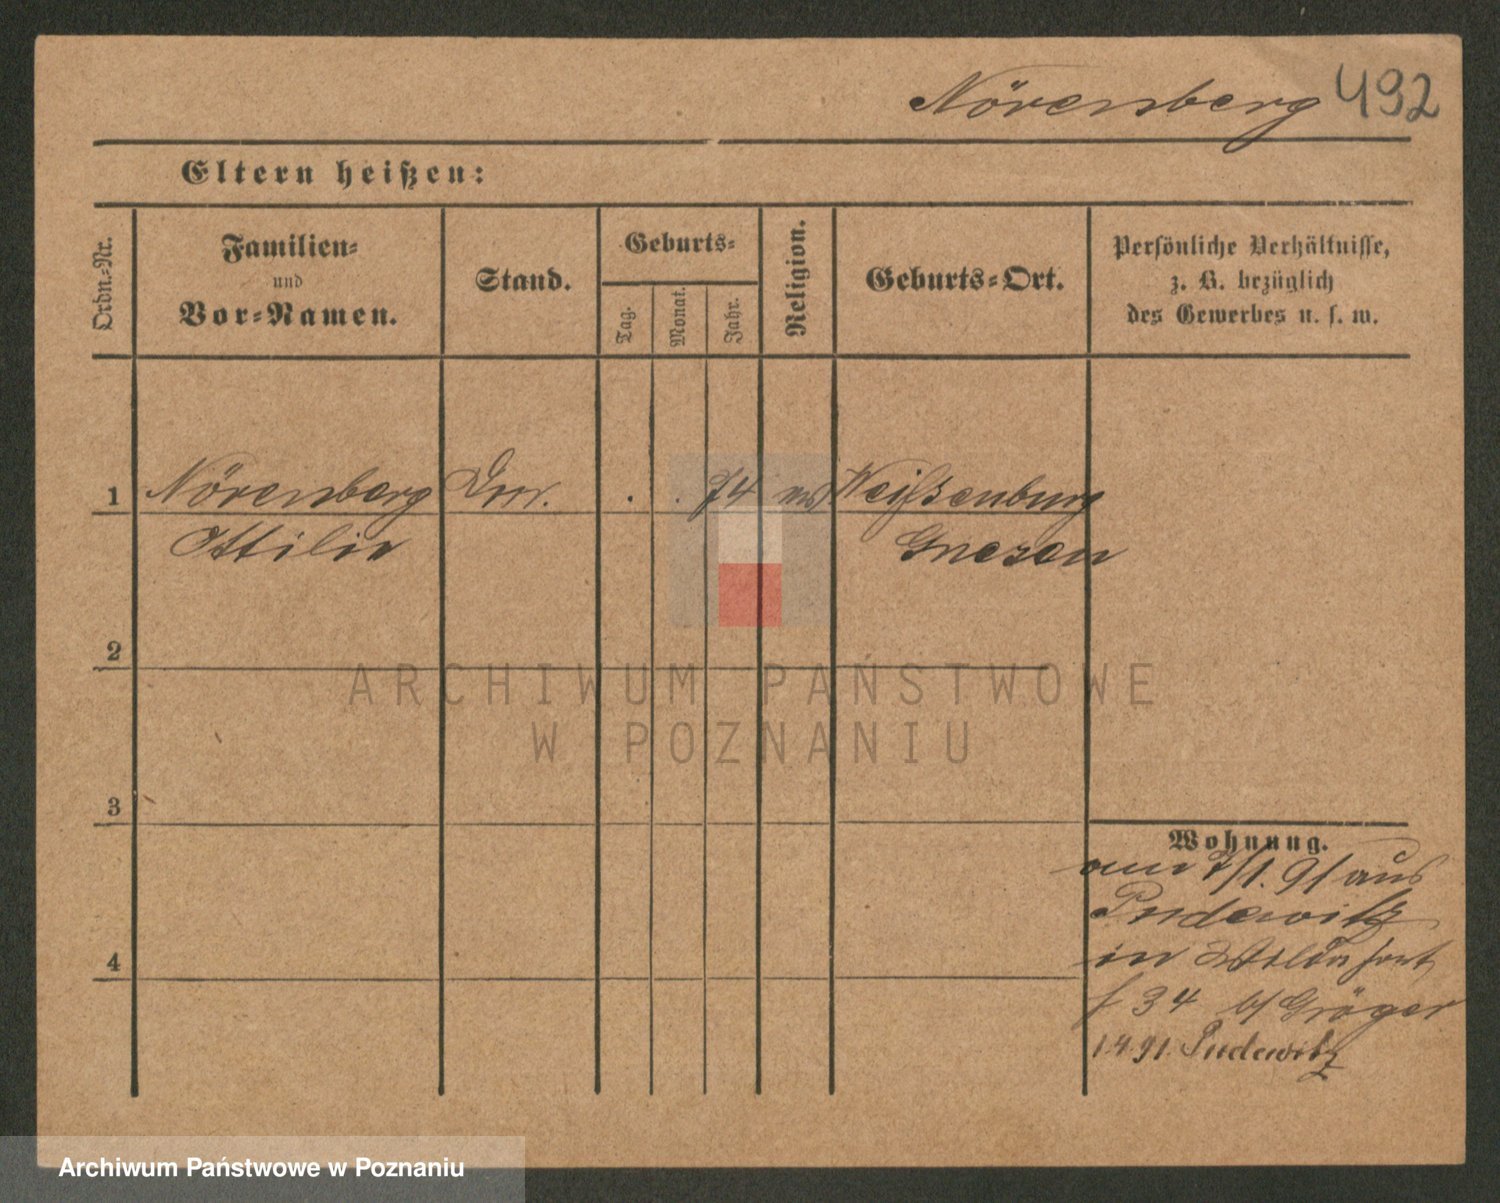 Nörenberg 492
Eltern heißen:
Ordn.-Nr.
Familien-
und
Vor-Namen.
Stand.
Geburts-
Tag.
Monat.
Jahr.
Religion.
Geburts-Ort.
Persönliche Verhältnisse,
z. B. bezüglich
des Gewerbes u. s. w.
1 Nörenberg . . 74 Weißenburg
Ottilie Gnesen
2
3
4
Wohnung.
am 7/1. 91 aus
Pudewitz
in
34 b/ Gröger
1.4.91. Pudewitz
ARCHIWUM PAŃSTWOWE
W POZNANIU
Archiwum Państwowe w Poznaniu